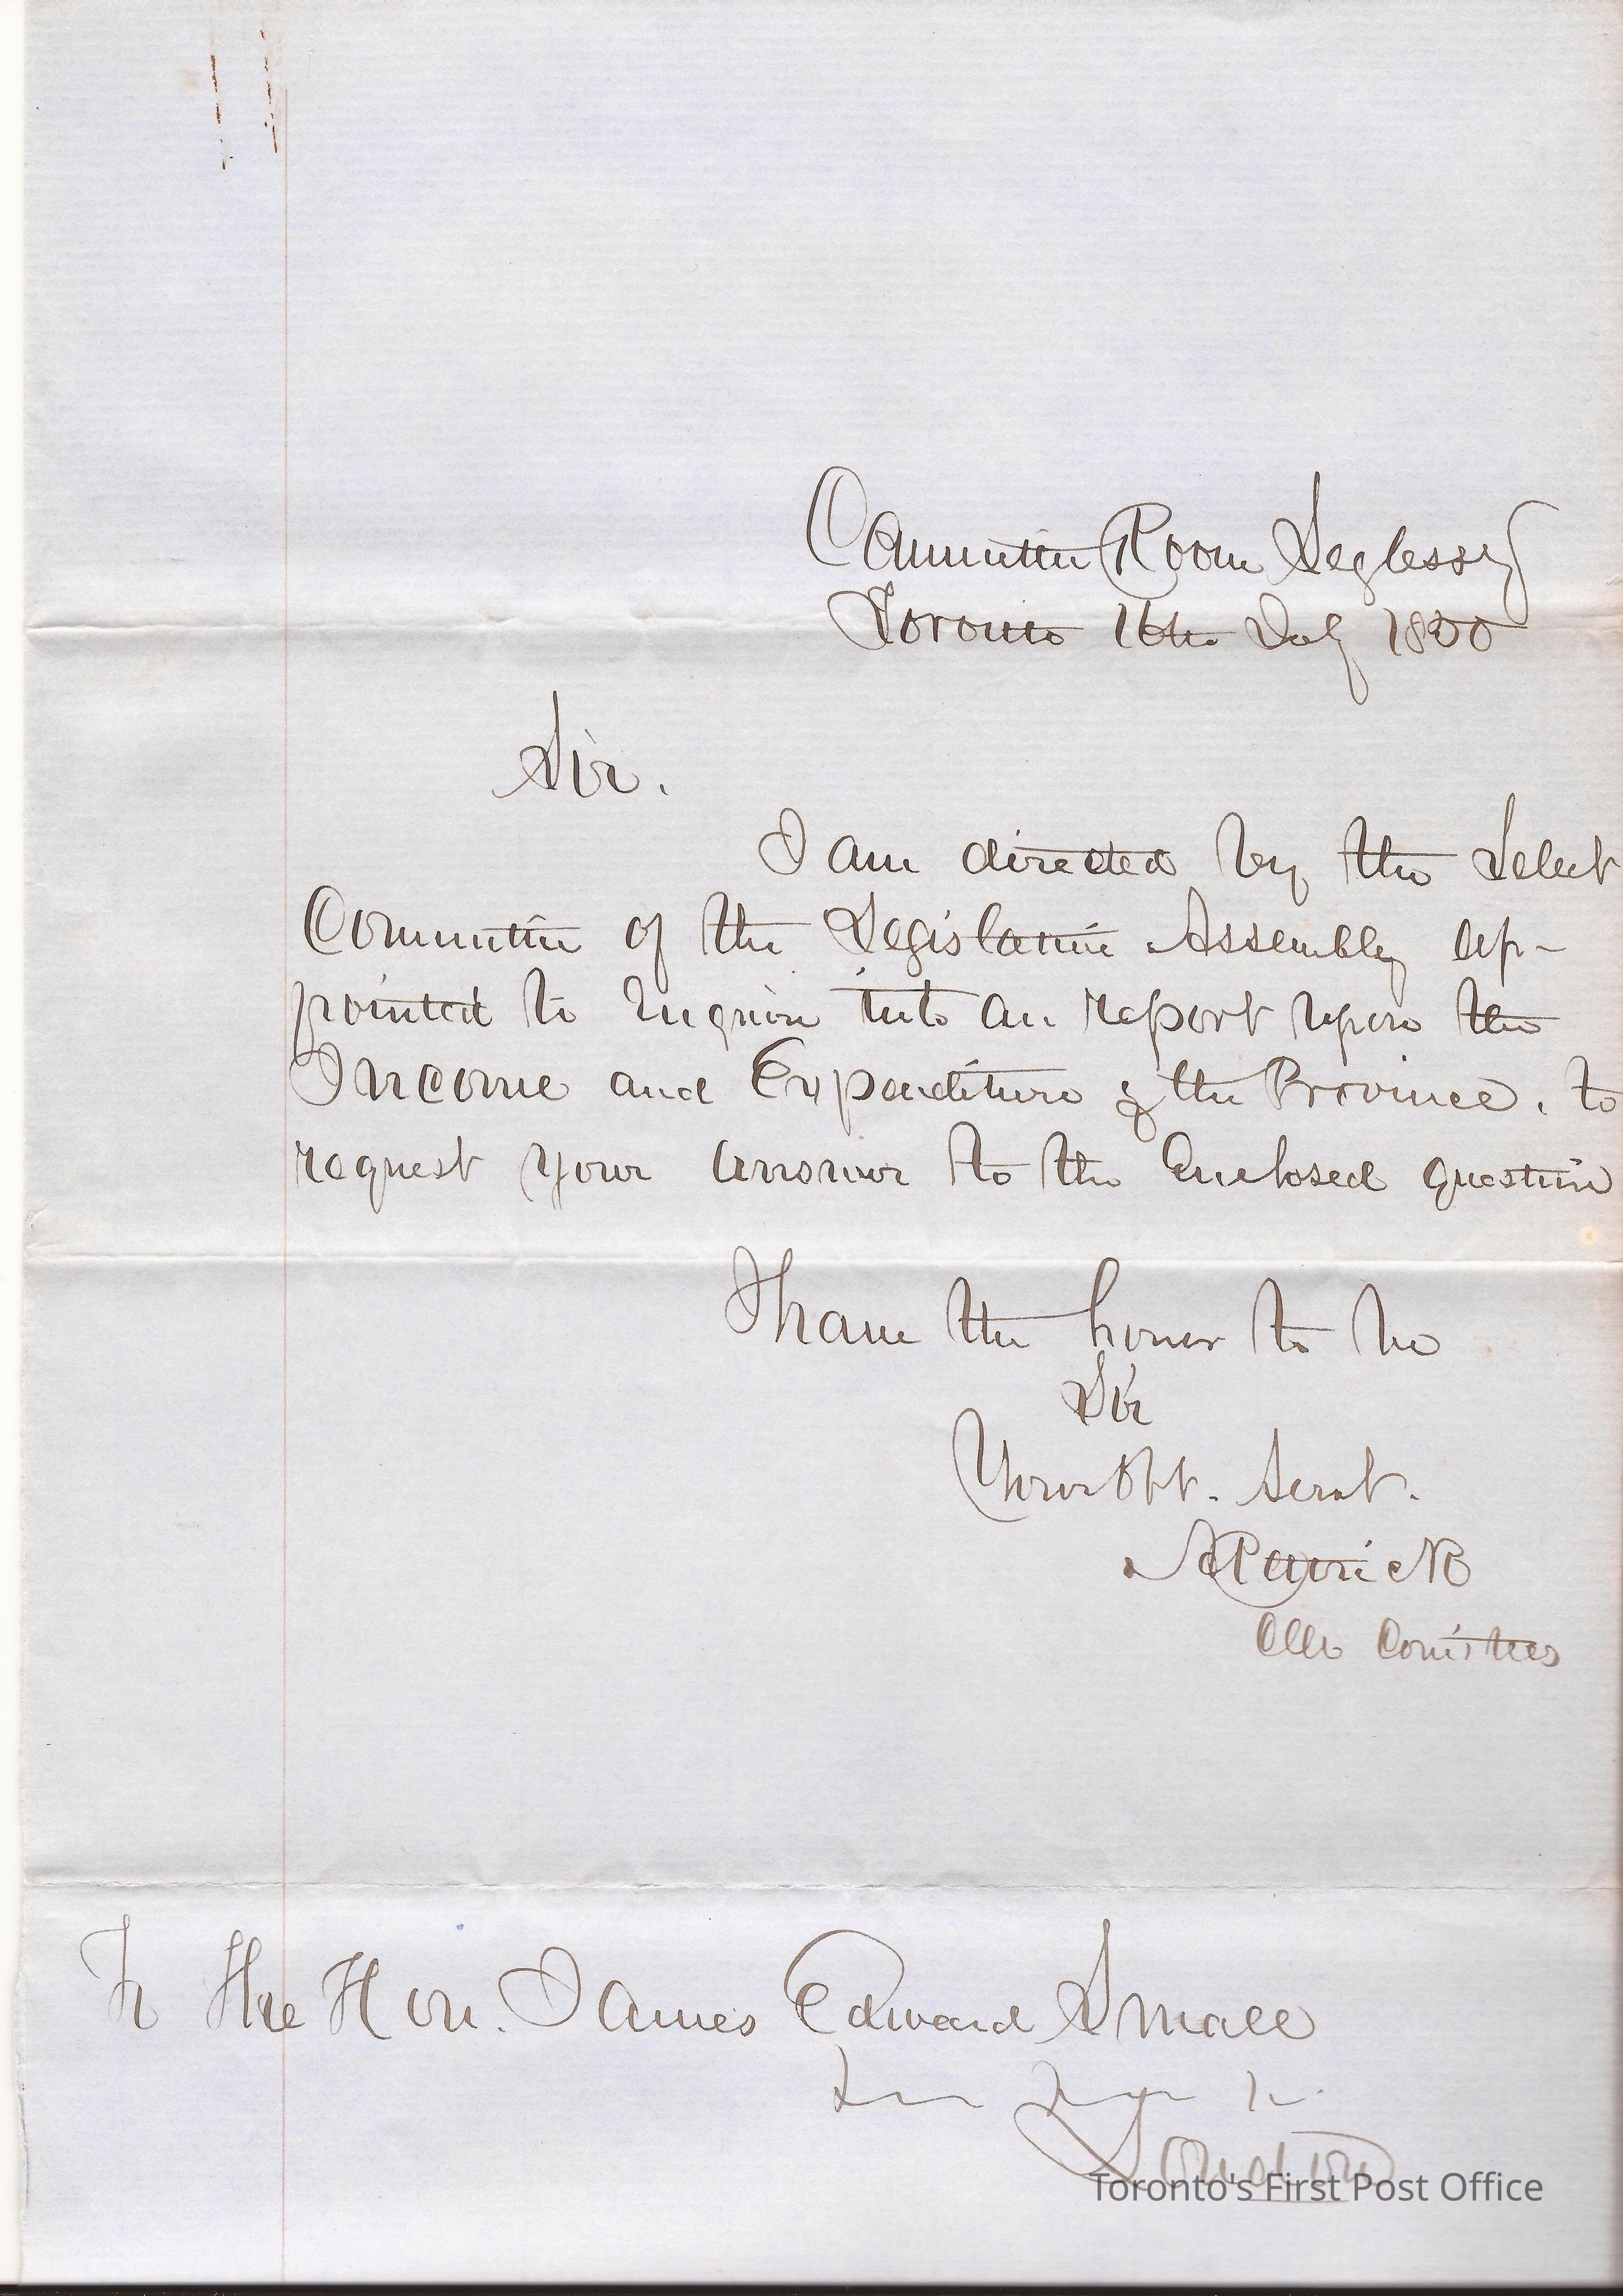 Committee Room Leg Assy
Toronto 16th July 1850
Sir.
I am directed by the Select
Committee of the Legislative Assembly ap-
pointed to Inquire into an report upon the
Income and Expenditure of the Province, to
request your answer to the Enclosed question
I have the honor to be
Sir
Your Obt. Servt.
A Patrick
Clk Comittees
To The Hon. James Edward Small
London
Toronto's First Post Office